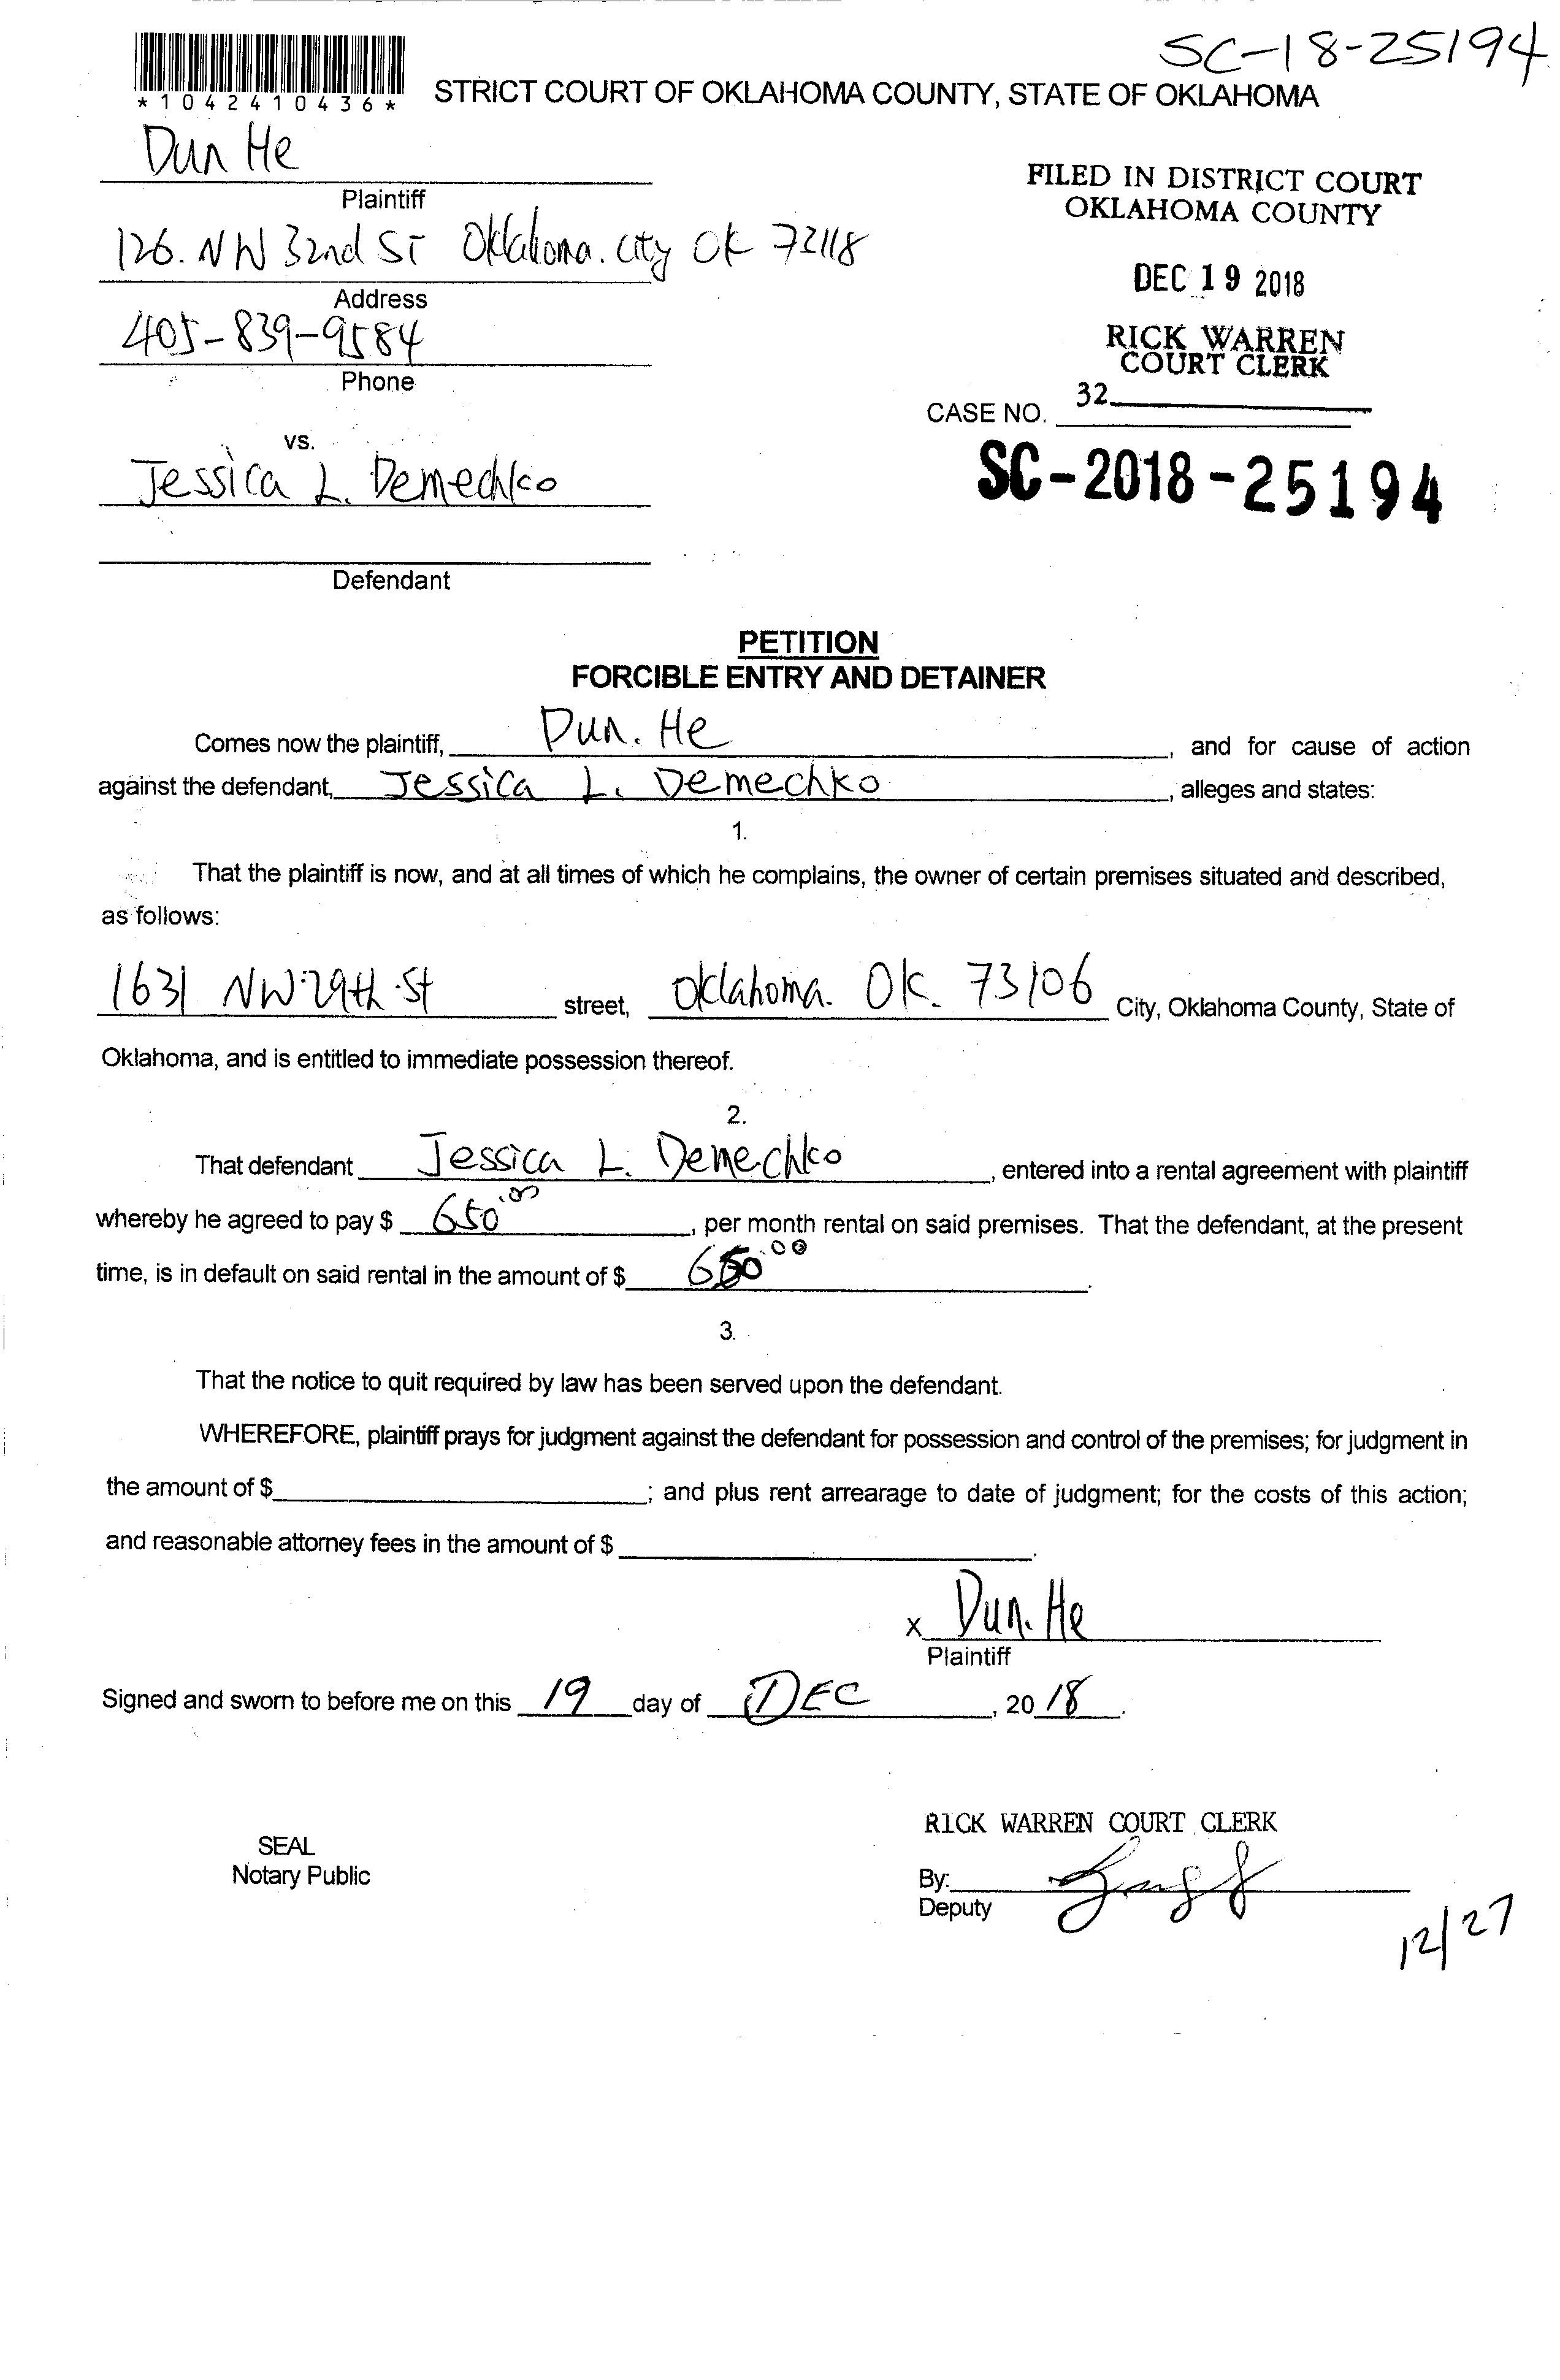 SC-18-25194
*1042410436*
STRICT COURT OF OKLAHOMA COUNTY, STATE OF OKLAHOMA
Dun He
Plaintiff
126. NW 32nd ST Oklahoma. city OK 73118
Address
405-839-9584
Phone
FILED IN DISTRICT COURT
OKLAHOMA COUNTY
DEC 19 2018
RICK WARREN
COURT CLERK
32
CASE NO.
SC-2018-25194
vs.
Jessica L. Demechko
Defendant
PETITION
FORCIBLE ENTRY AND DETAINER
Comes now the plaintiff, Dun. He, and for cause of action
against the defendant, Jessica L. Demechko, alleges and states:
1.
That the plaintiff is now, and at all times of which he complains, the owner of certain premises situated and described,
as follows:
1631 NW 29th St street, Oklahoma. OK. 73106 City, Oklahoma County, State of
Oklahoma, and is entitled to immediate possession thereof.
2.
That defendant Jessica L. Demechko, entered into a rental agreement with plaintiff
whereby he agreed to pay $ 650.00, per month rental on said premises. That the defendant, at the present
time, is in default on said rental in the amount of $ 650.00.
3.
That the notice to quit required by law has been served upon the defendant.
WHEREFORE, plaintiff prays for judgment against the defendant for possession and control of the premises; for judgment in
the amount of $ ; and plus rent arrearage to date of judgment; for the costs of this action;
and reasonable attorney fees in the amount of $ .
X Dun. He
Plaintiff
Signed and sworn to before me on this 19 day of DEC, 20 18.
RICK WARREN COURT CLERK
SEAL
Notary Public
By:
Deputy
12/27